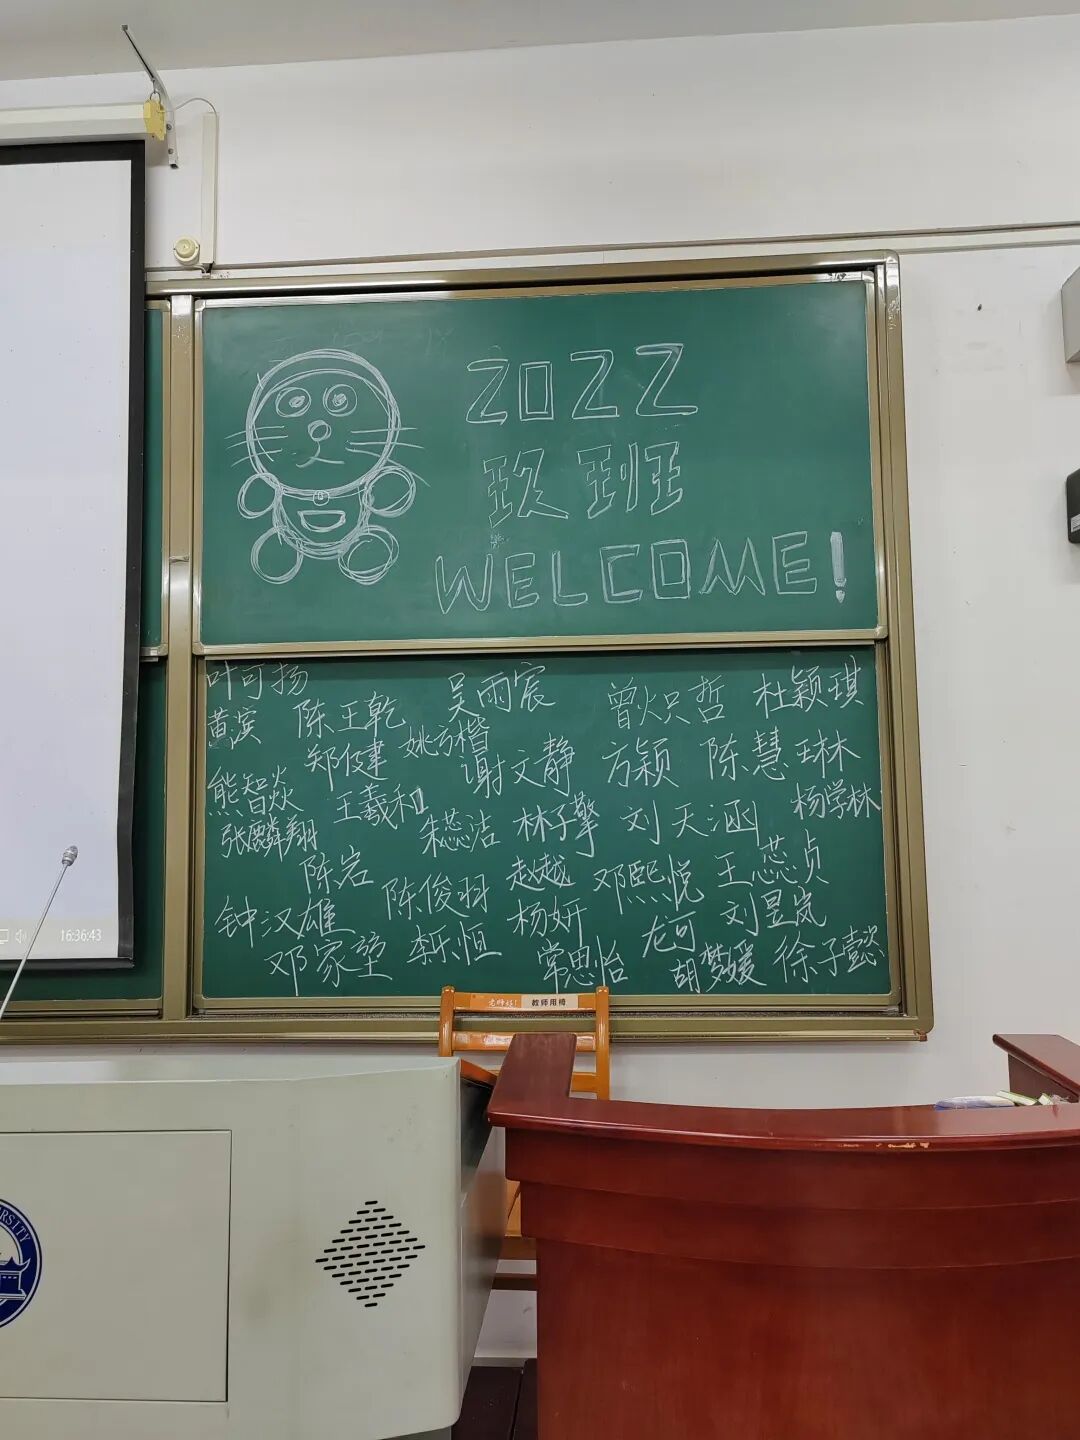 2022
玖班
WELCOME!
叶可扬
吴雨宸
曾炽哲
杜颖琪
黄滨
陈王乾
姚方楷
郑俊健
谢文静
方颖
陈慧琳
熊智焱
王羲和
杨学林
张麟翔
朱蕊洁
林子擎
刘天涵
陈岩
赵越
邓熙悦
王蕊贞
陈俊羽
杨妍
刘昱岚
钟汉雄
龙可
邓家堃
李恒
常思怡
胡梦媛
徐子懿
老师好!
教师用椅
16:36:43
ERSITY